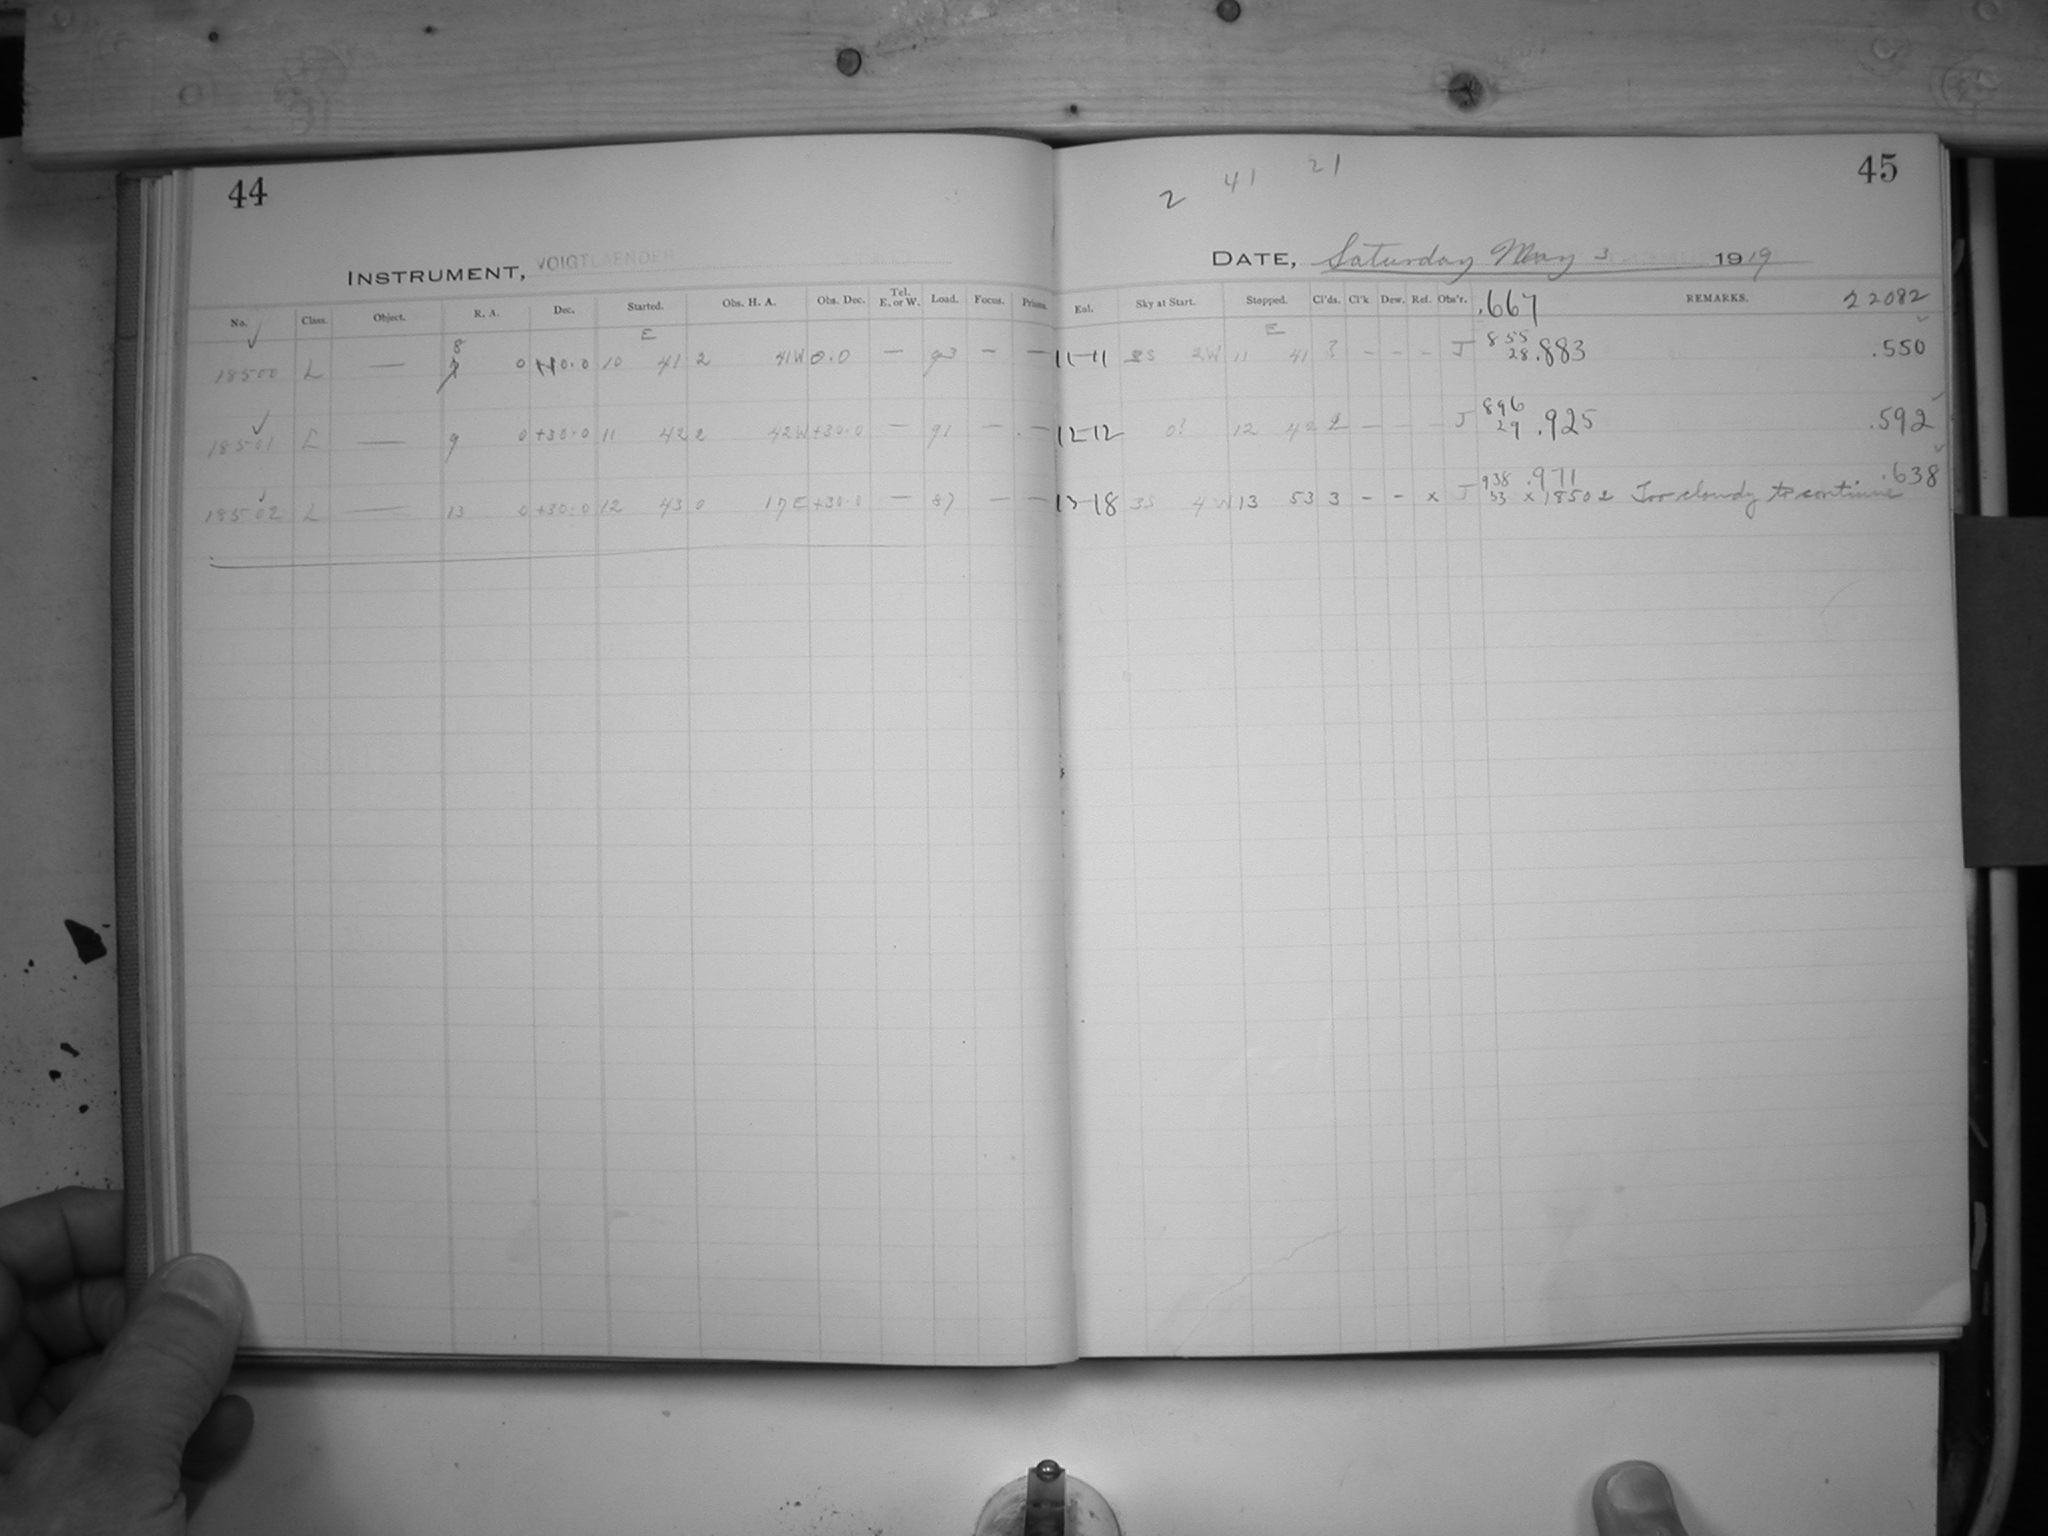 44
INSTRUMENT, VOIGTLAENDER
No. Class. Object. R. A. Dec. Started. Obs. H. A. Obs. Dec. Tel. E. or W. Load. Focus. Prisms.
E
8
18500 L — 0 10 41 2 41W 0.0 — 93 – —
18501 L — 9 0 +30.0 11 42 2 42W +30.0 — 91 – —
18502 L — 13 0 +30.0 12 43 0 17E +30.0 — 87 – —
2 41 21
45
DATE, Saturday May 3 1919
Exl. Sky at Start. Stopped. Cl'ds. Cl'k Dew. Ref. Obs'r. .667 REMARKS. 22082
E
11–11 2W 11 41 3 – – – J 855 28 .883 .550
12–12 12 42 2 – – – J 896 29 .925 .592
13–18 3S 4W 13 53 3 – – x J 938 33 .971 .638
x 18502 Too cloudy to continue